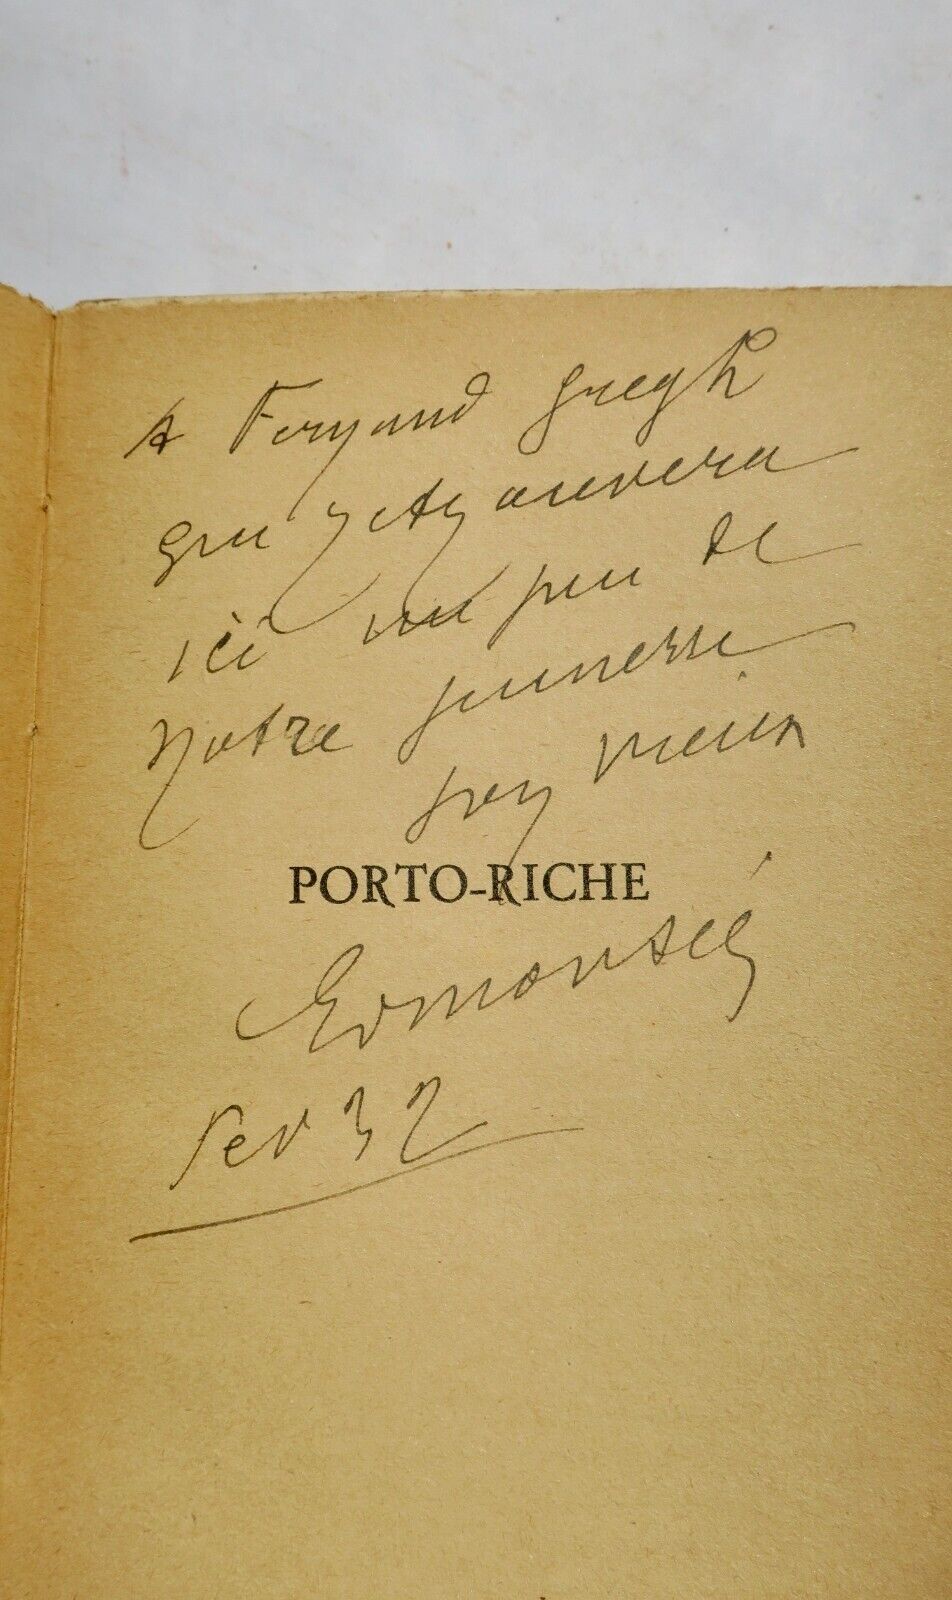 A Fernand Gregh
qui retrouvera
ici un peu de
notre jeunesse
son vieux
PORTO-RICHE
Edmond Sée
Fev 32